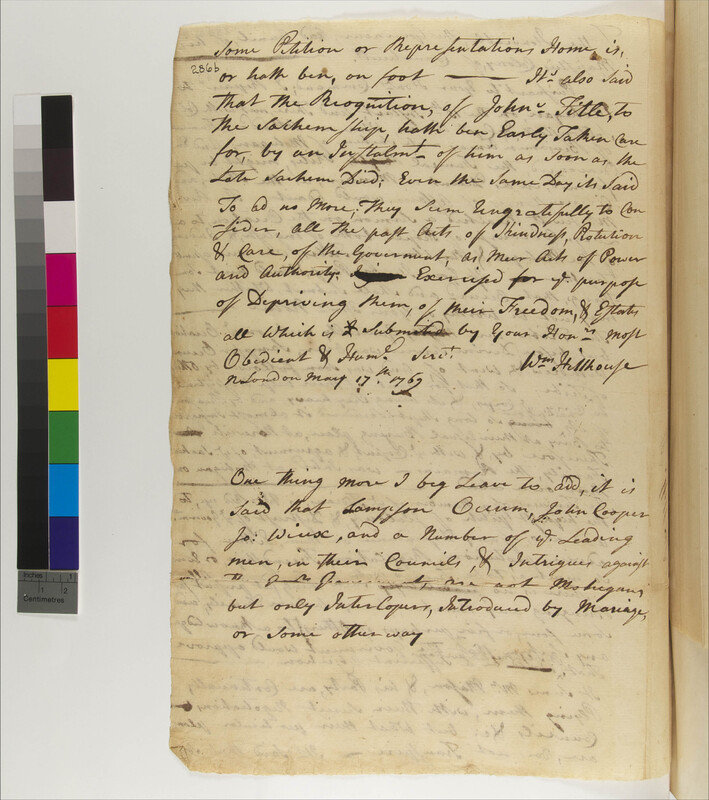 some Petition or Representations Home, is,
286b
or hath ben, on foot —— Its also said
that the Recognition, of Johns Title, to
the Sachem ship, hath ben Early Taken Care
for, by an Instalmt of him as soon as the
Late Sachem Died; Even the Same Day its Said
To ad no More; They Seem Ungratefully to Con
-sider, all the past Acts of Kindness, Protection
& Care, of the Goverment, as Meer Acts of Power
and Authority; Exercised for ye purpose
of Depriving them, of their Freedom, & Estates
all Which is Submited by Your Honrs most
Obedient & Humle Servt Wm Hillhouse
N London May 17th 1769
One thing more I beg Leave to add, it is
Said that Sampson Occum, John Cooper
Jo: Wiux, and a Number of ye Leading
men, in their Councils, & Intrigues against
are not Mohegans
but only Interlopers, Introduced by Mariage,
or some other way
inches
1 2
Centimetres